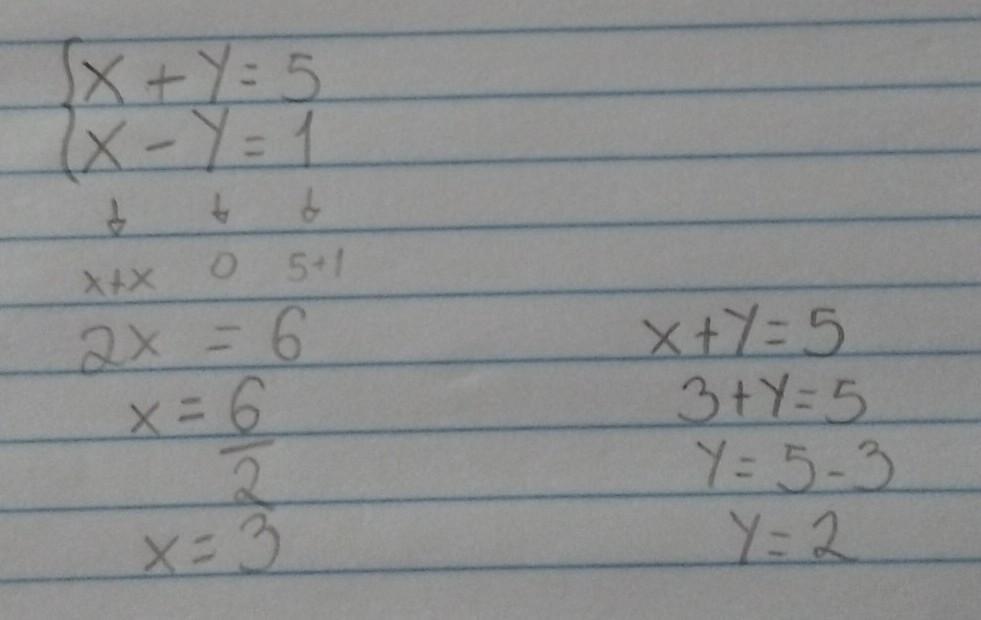 x + y = 5
x - y = 1
↓ ↓ ↓
x+x 0 5+1
2x = 6
x = 6/2
x = 3
x+y=5
3+y=5
y=5-3
y=2